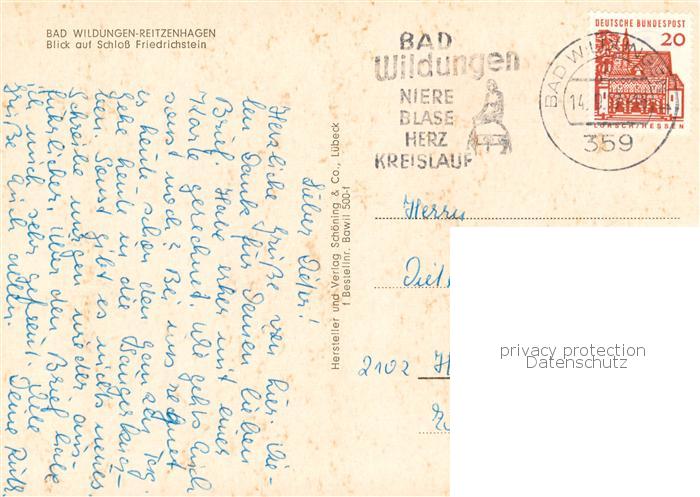 BAD WILDUNGEN-REITZENHAGEN
Blick auf Schloß Friedrichstein
BAD
Wildungen
NIERE
BLASE
HERZ
KREISLAUF
BAD WILDUNGEN
14.
359
DEUTSCHE BUNDESPOST
20
LORSCH/HESSEN
Lieber Dieter!
Herzliche Grüße von hier. Vie-
len Dank für Deinen lieben
Brief. Habe eher mit einer
Karte gerechnet. Wie geht's Euch
sonst noch? Bei uns regnet
es heute schon den ganzen Tag.
Gehe heute in die
len. Sonst gibt es nichts neues.
Schreibe morgen wieder aus-
führlicher. Über den Brief habe
ich mich sehr gefreut. Viele
Grüße Euch allen. Deine Ruth
Hersteller und Verlag Schöning & Co., Lübeck
f Bestellnr. Bawil 500-f
Herrn
Diet
2102 H
privacy protection
Datenschutz